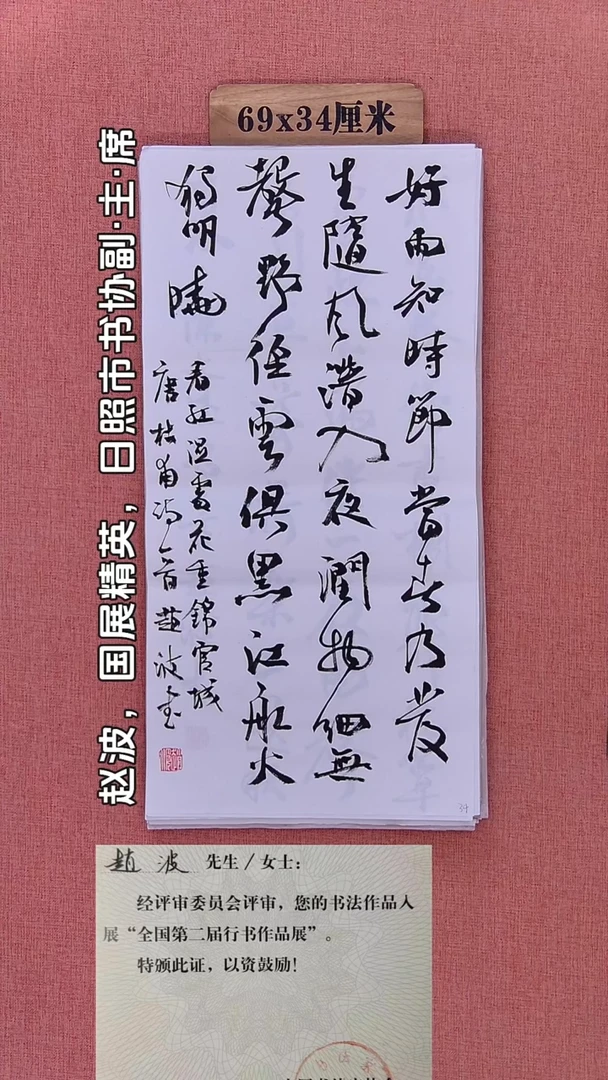 69x34厘米
好雨知時節當春乃發
生隨風潛入夜潤物細無
聲野徑雲俱黑江船火
獨明曉
看紅濕處花重錦官城
唐杜甫詩一首趙波書
赵波，国展精英，日照市书协副·主·席
趙波 先生/女士：
经评审委员会评审，您的书法作品入
展“全国第二届行书作品展”。
特颁此证，以资鼓励！